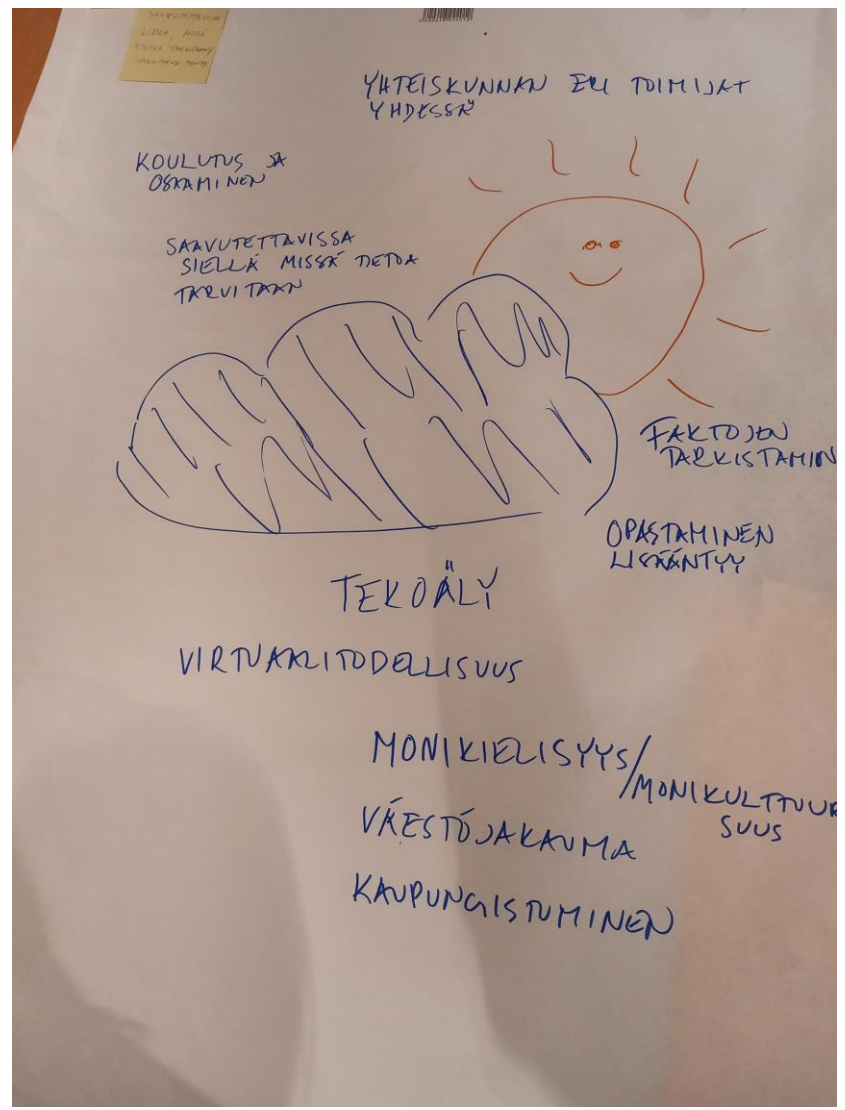 YHTEISKUNNAN ERI TOIMIJAT
YHDESSÄ
KOULUTUS JA
OSAAMINEN
SAAVUTETTAVISSA
SIELLÄ MISSÄ TIETOA
TARVITAAN
FAKTOJEN
TARKISTAMIN
OPASTAMINEN
LISÄÄNTYY
TEKOÄLY
VIRTUAALITODELLISUUS
MONIKIELISYYS/
MONIKULTTUUR
SUUS
VÄESTÖJAKAUMA
KAUPUNGISTUMINEN